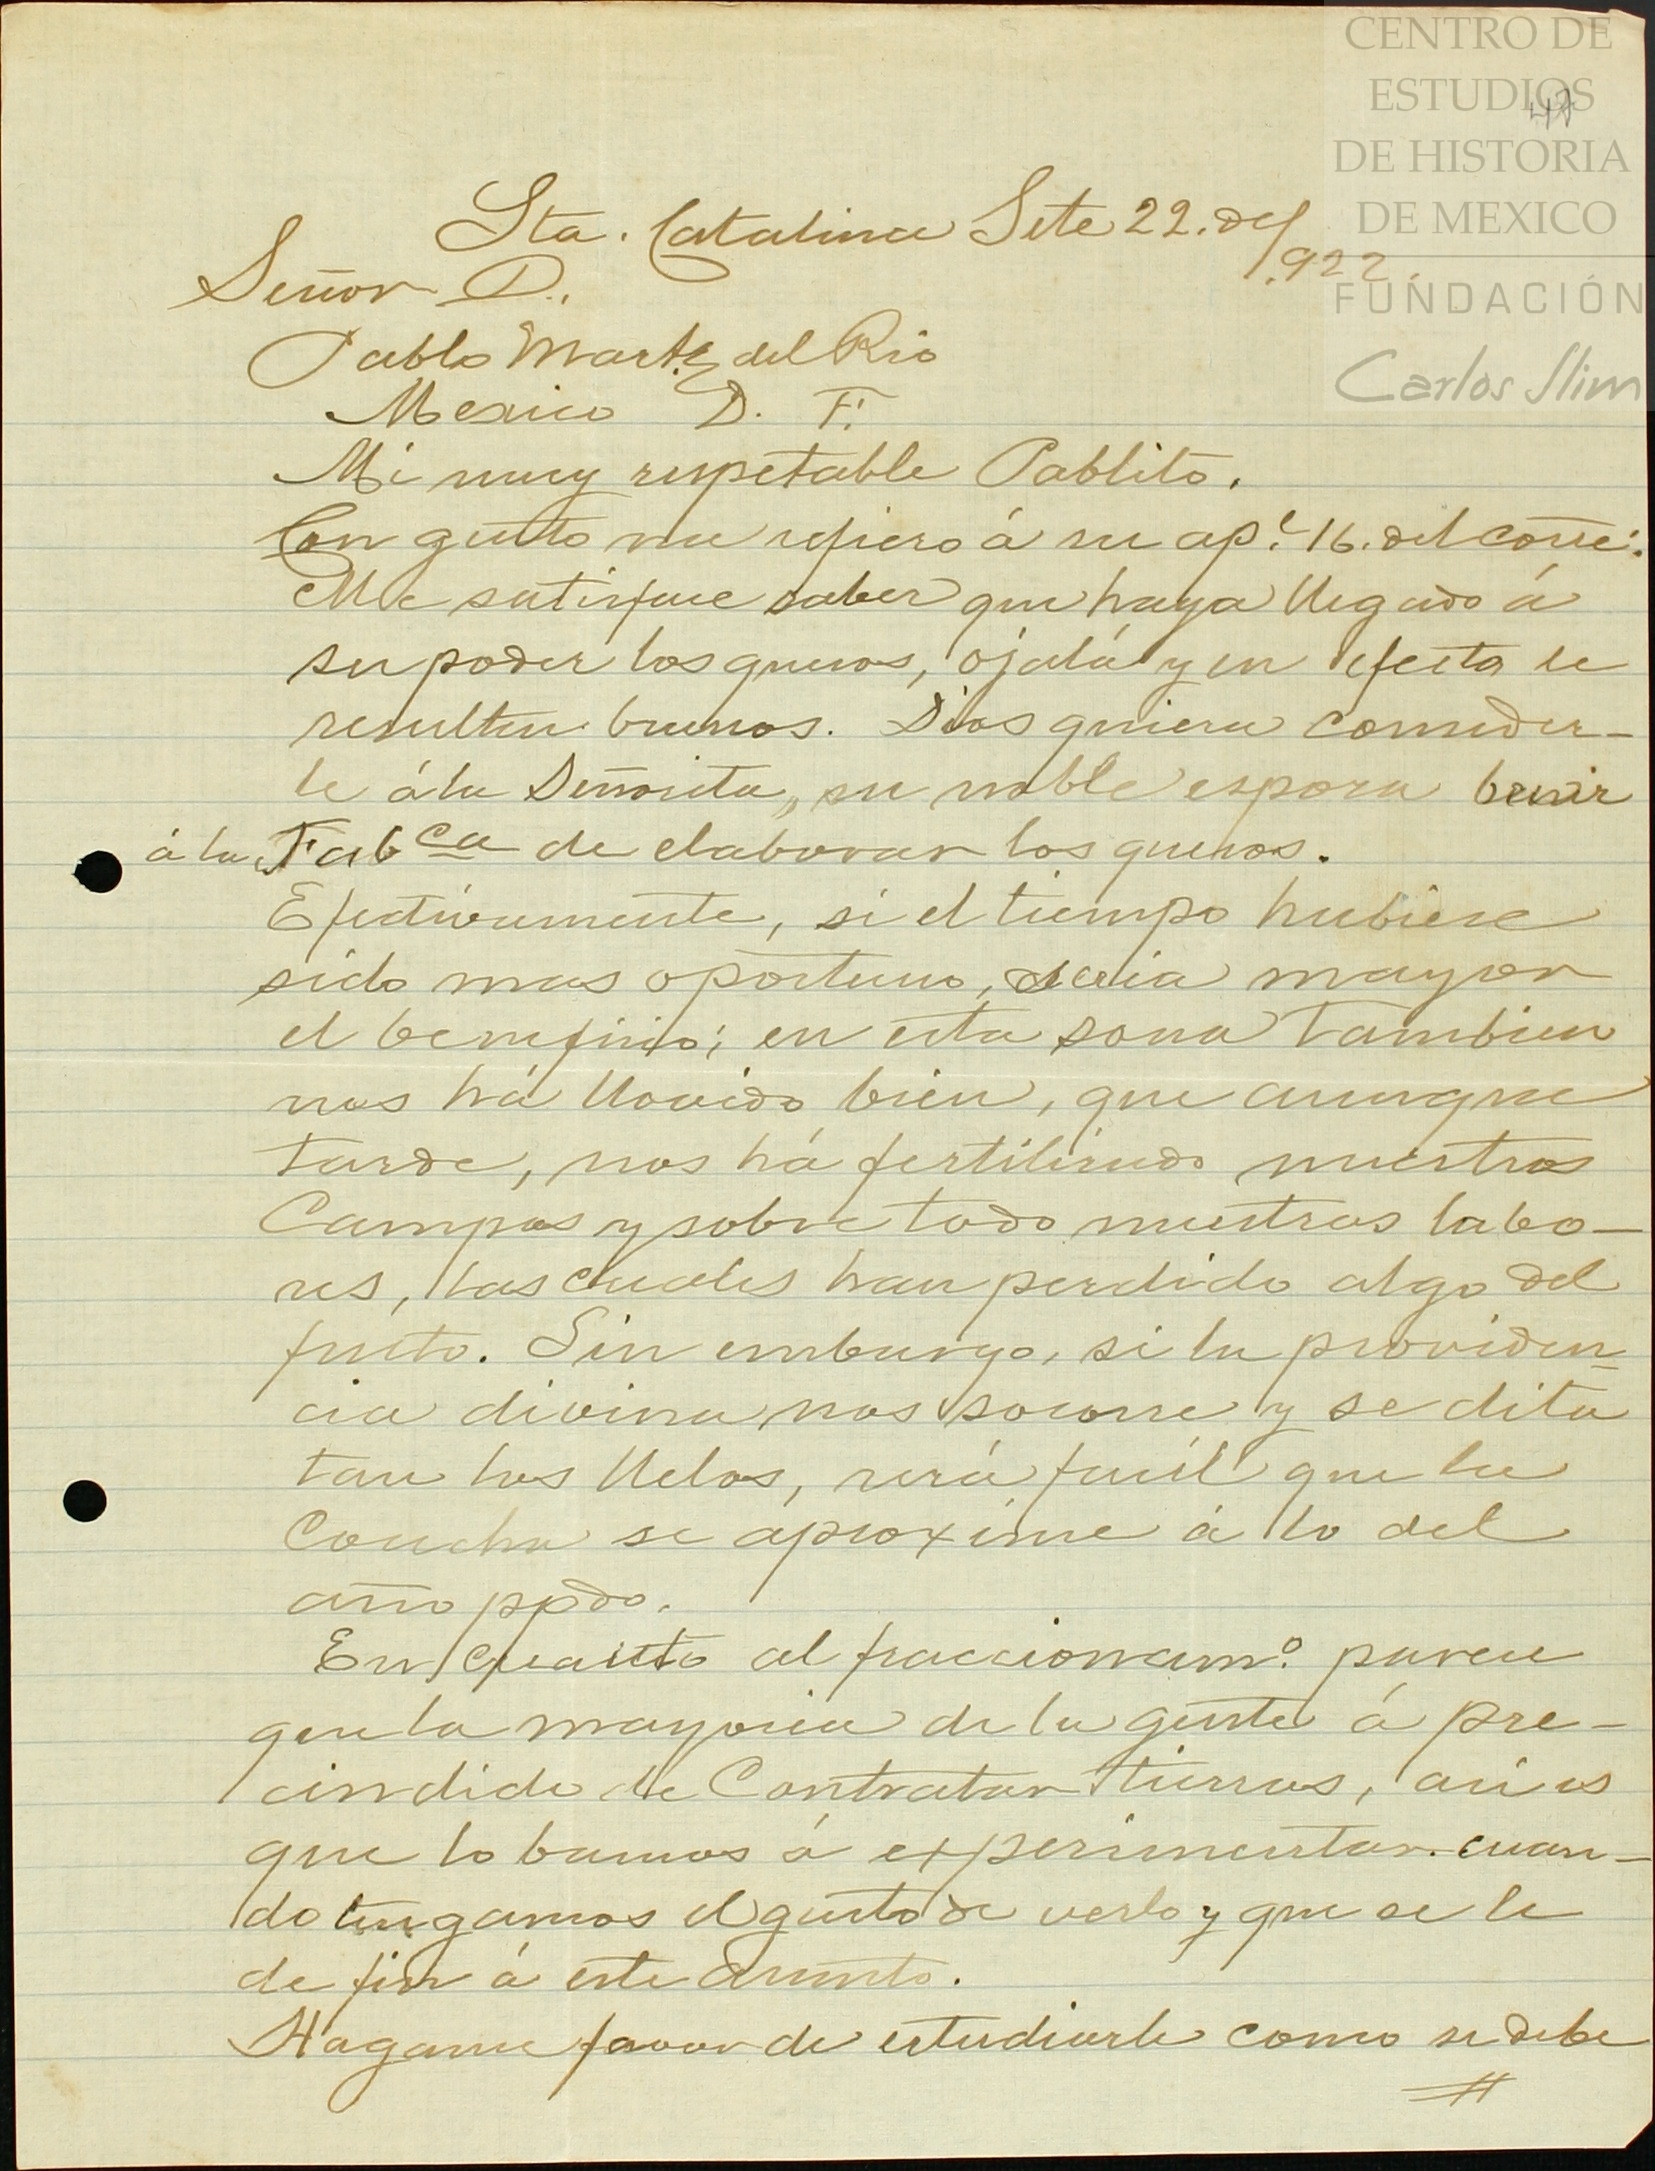 CENTRO DE
ESTUDIOS
DE HISTORIA
DE MEXICO
FUNDACIÓN
Carlos Slim
47
Sta. Catalina Sete 22. del
.922
Señor D.
Pablo Martz del Rio
Mexico D. F.
Mi muy respetable Pablito.
Con gusto me refiero á su ap.e 16. del corre.
Me satisface saber que haya llegado á
su poder los quesos, ojalá y en efecto le
resulten buenos. Dios quiera conceder-
le á la Señorita, su noble esposa benir
á la Fabca de elaborar los quesos.
Efectivamente, si el tiempo hubiese
sido mas oportuno, seria mayor
el beneficio; en esta sona tambien
nos há llovido bien, que aunque
tarde, nos há fertilisado nuestros
Campos y sobre todo nuestras labo-
res, las cuales han perdido algo del
fruto. Sin embargo, si la providen-
cia divina nos socorre y se dila
tan los Yelos, será facil que la
Cosecha se aproxime á lo del
año ppdo.
En cuanto al fraccionam.o parece
que la mayoria de la gente á pre-
cindido de Contratar tierras, asi es
que lo bamos á experimentar cuan-
do tengamos el gusto de verlo y que se le
de fin á este asunto.
Hagame favor de estudiarle como se debe